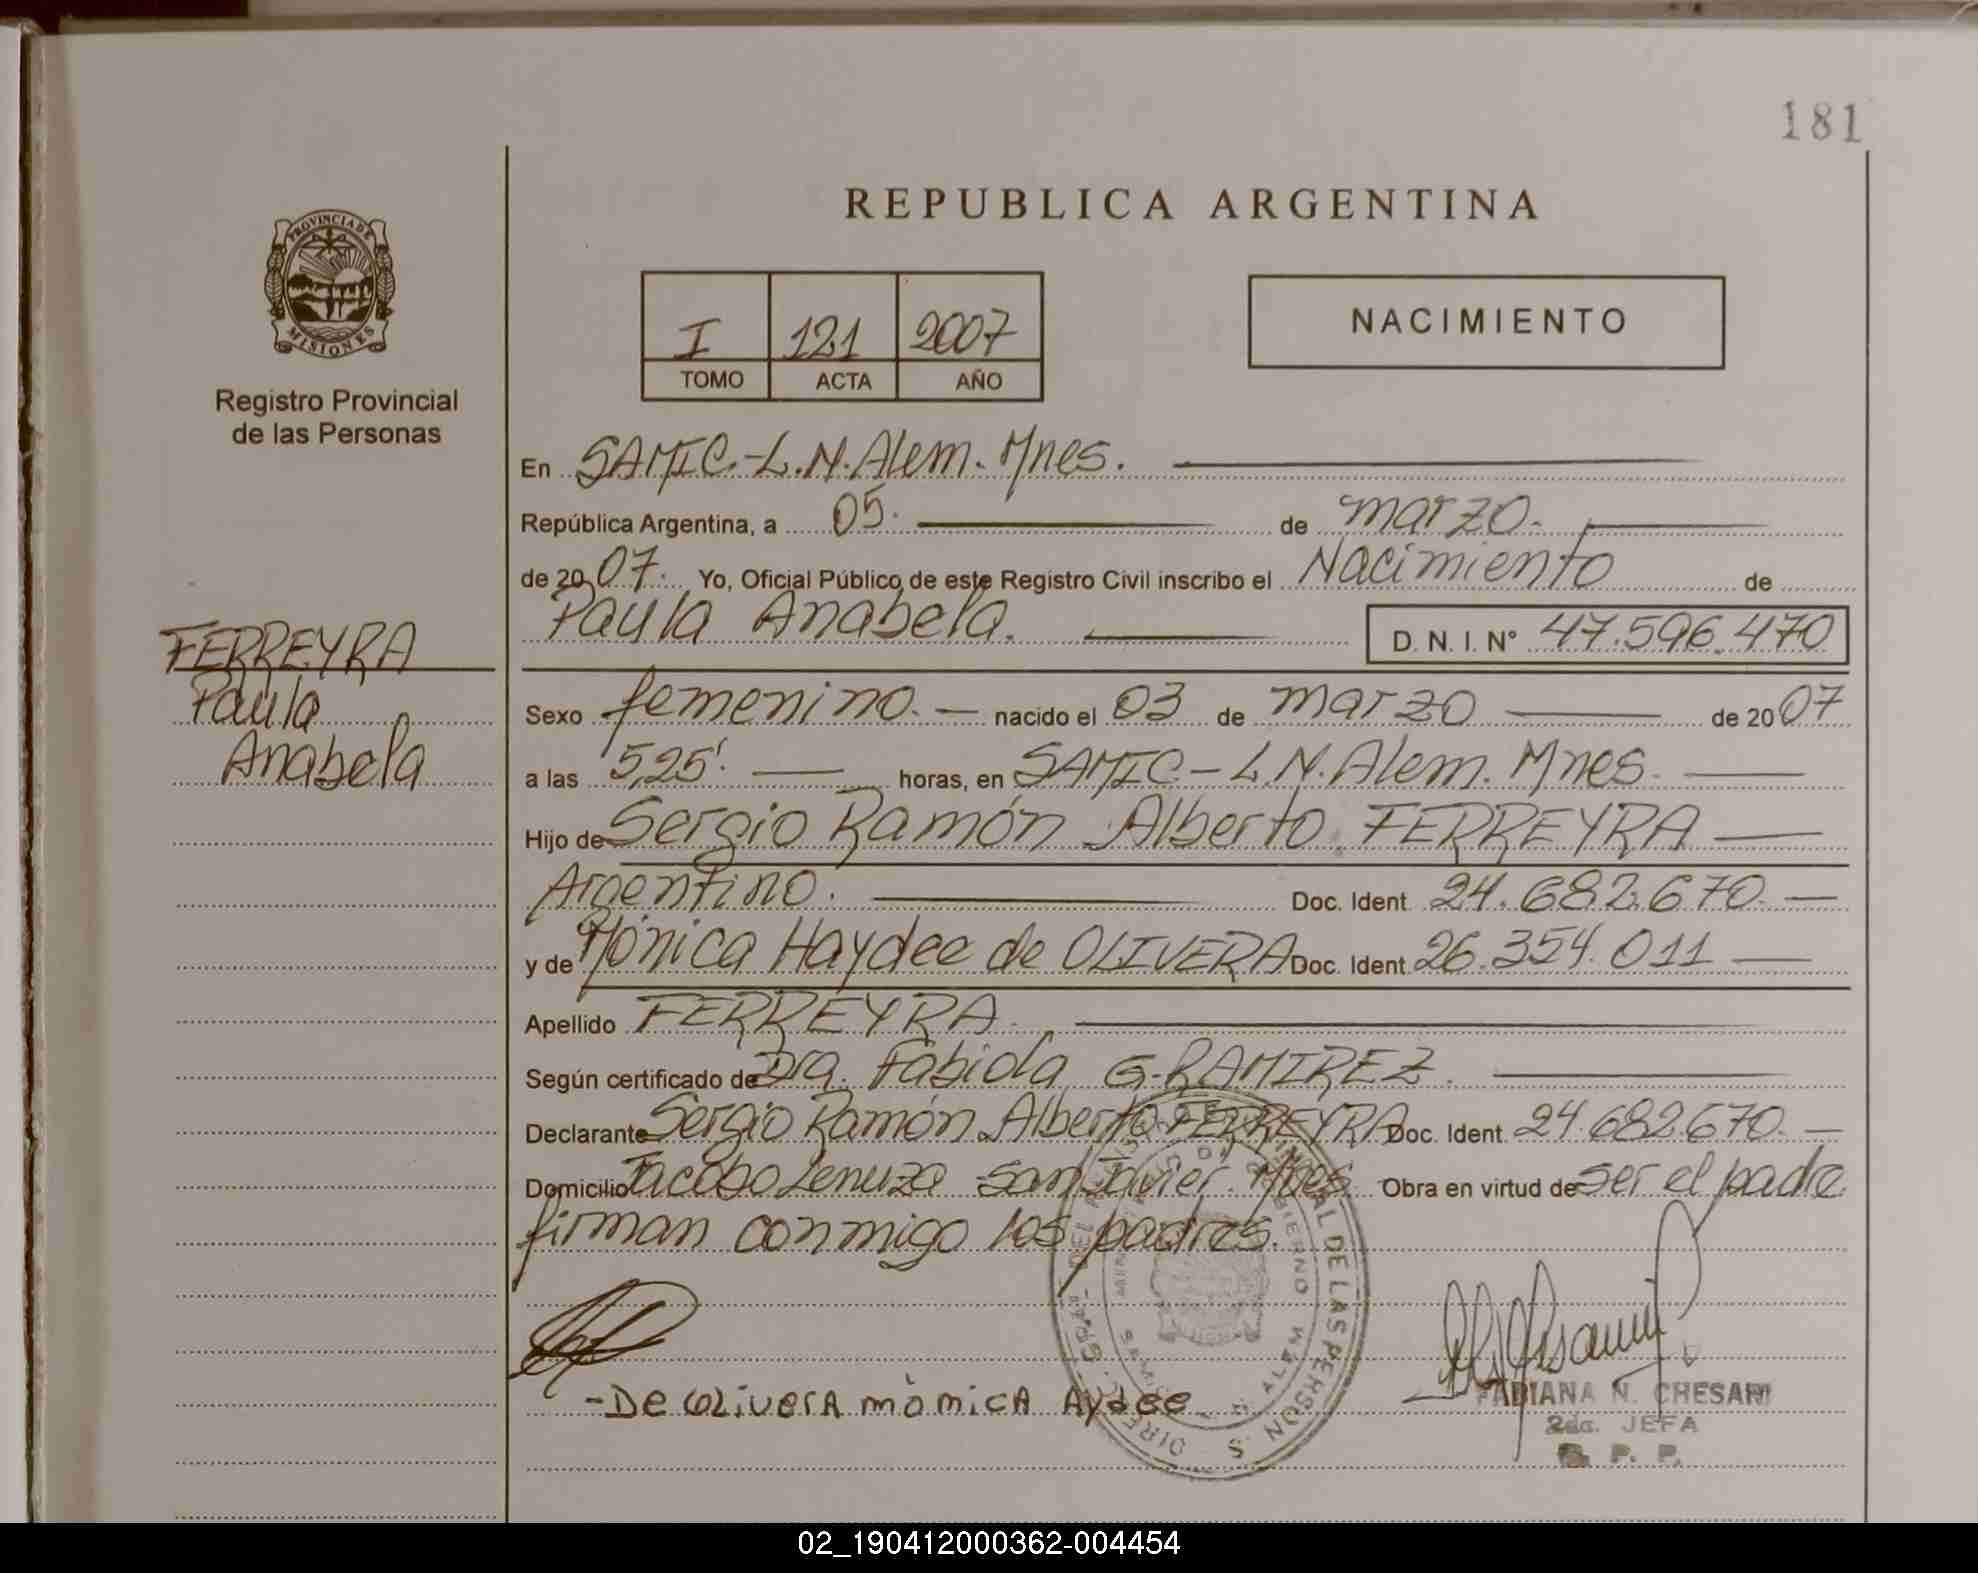 181
REPUBLICA ARGENTINA
PROVINCIA DE
MISIONES
Registro Provincial
de las Personas
I 121 2007
TOMO ACTA AÑO
NACIMIENTO
En SAMIC.-L.N.Alem. Mnes.
República Argentina, a 05. de marzo.
de 2007. Yo, Oficial Público de este Registro Civil inscribo el Nacimiento de
Paula Anabela. D. N. I. N° 47.596.470
FERREYRA
Paula
Anabela
Sexo femenino. nacido el 03 de marzo de 2007
a las 5,25'. horas, en SAMIC-L.N.Alem. Mnes.
Hijo de Sergio Ramón Alberto FERREYRA
Argentino. Doc. Ident. 24.682.670.
y de Mónica Haydee de OLIVERA Doc. Ident. 26.354.011
Apellido FERREYRA.
Según certificado de Dra. Fabiola G.RAMIREZ.
Declarante Sergio Ramón Alberto FERREYRA Doc. Ident. 24.682.670.
Domicilio San Javier. Mnes Obra en virtud de ser el padre
firman conmigo los padres.
-De OLiverA mònicA Aydee
FABIANA N. CHESANI
2da. JEFA
R. P. P.
02_190412000362-004454